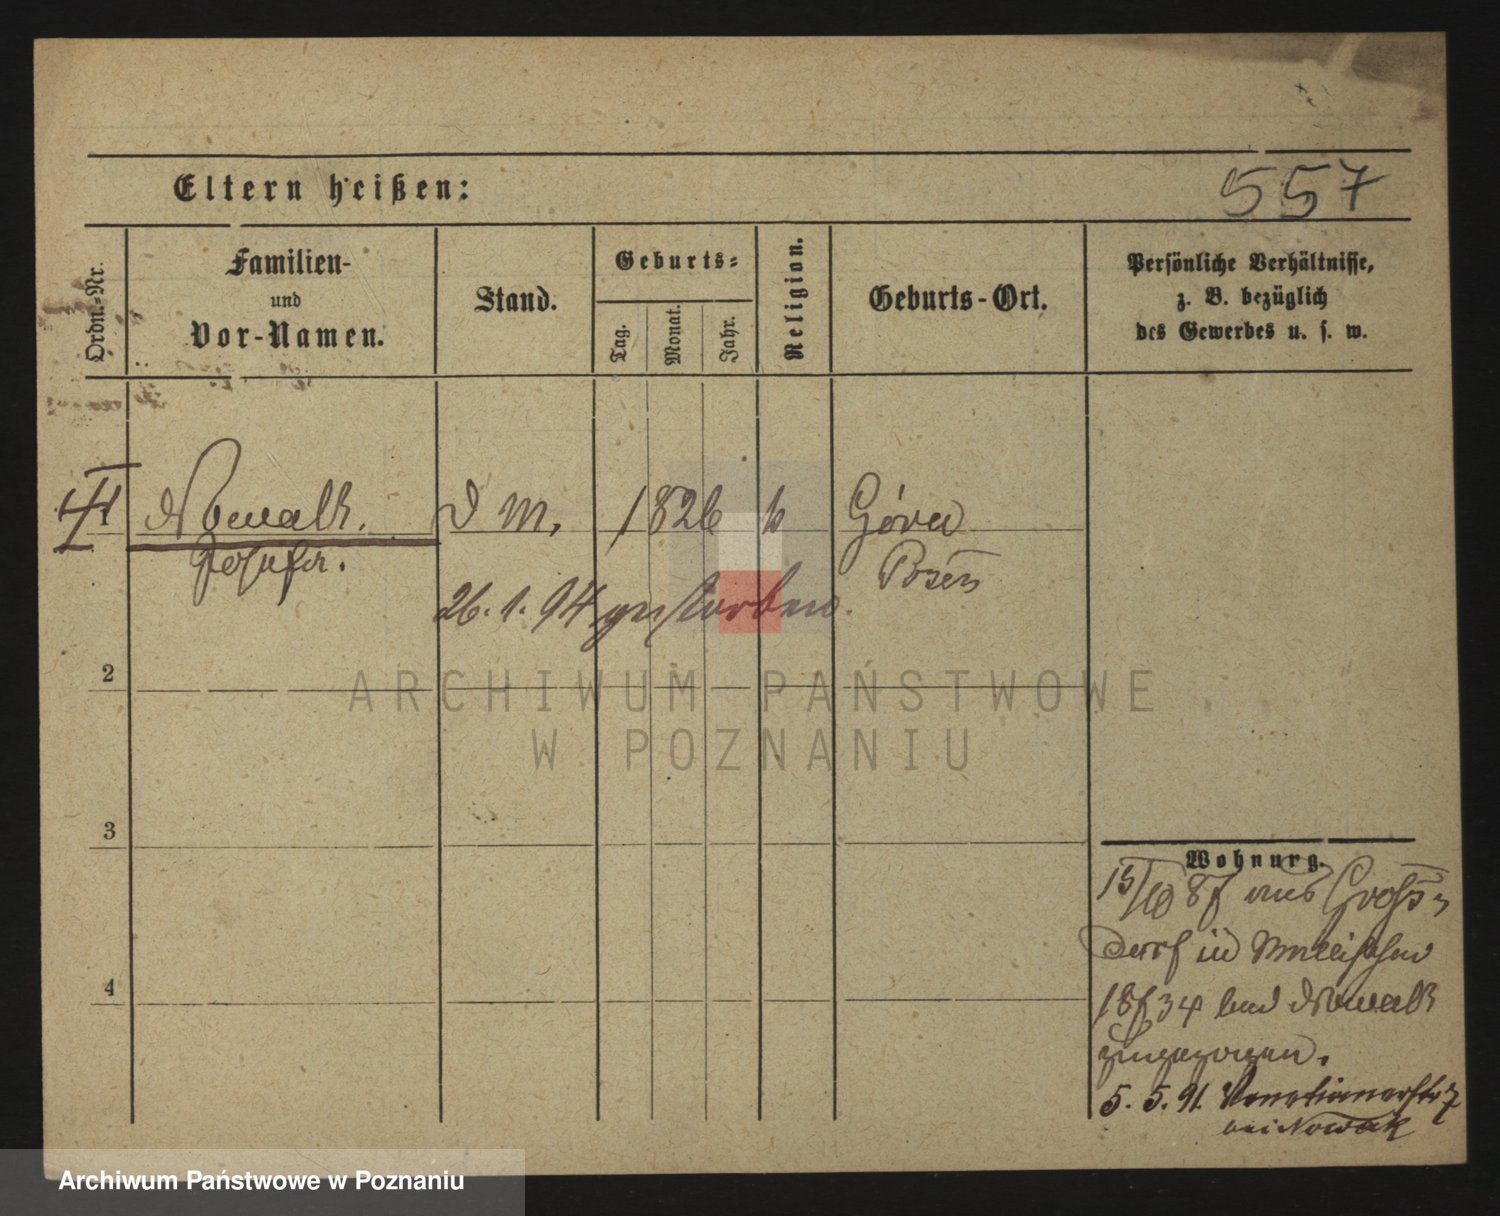 Eltern heißen:
557
Ordn.-Nr.
Familien-
und
Vor-Namen.
Stand.
Geburts-
Tag.
Monat.
Jahr.
Religion.
Geburts-Ort.
Persönliche Verhältnisse,
z. B. bezüglich
des Gewerbes u. s. w.
1 Nowak. d M. 1826 k Góra
Josefa. Posen
26.1.94 gestorben.
2
ARCHIWUM PAŃSTWOWE
W POZNANIU
3
Wohnung.
15/10 87 aus Gross
Dorf in
18 34 bei Nowak
zugezogen.
5. 5. 91. Venetianerstr 7
bei Nowak
4
Archiwum Państwowe w Poznaniu